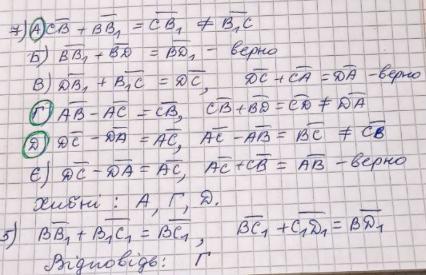 7) А) CB̅ + BB₁̅ = CB₁̅ ≠ B₁C̅
Б) BB₁̅ + BD̅ = BD₁̅ - верно
В) DB₁̅ + B₁C̅ = DC̅, DC̅ + CA̅ = DA̅ - верно
Г) AB̅ - AC̅ = CB̅, CB̅ + BD̅ = CD̅ ≠ DA̅
Д) DC̅ - DA̅ = AC̅, AC̅ - AB̅ = BC̅ ≠ CB̅
Є) DC̅ - DA̅ = AC̅, AC̅ + CB̅ = AB̅ - верно
Хибні : А, Г, Д.
5) BB₁̅ + B₁C₁̅ = BC₁̅, BC₁̅ + C₁D₁̅ = BD₁̅
Відповідь: Г